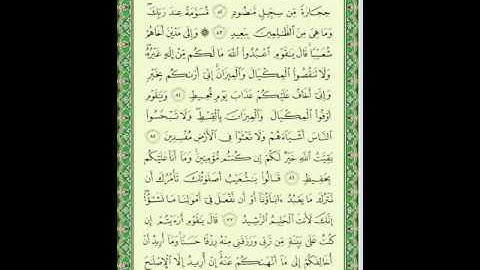 حِجَارَةً مِّن سِجِّيلٍ مَّنضُودٍ ٨٢ مُّسَوَّمَةً عِندَ رَبِّكَۖ
وَمَا هِىَ مِنَ ٱلظَّـٰلِمِينَ بِبَعِيدٍ ٨٣ ۞ وَإِلَىٰ مَدْيَنَ أَخَاهُمْ
شُعَيْبًاۚ قَالَ يَـٰقَوْمِ ٱعْبُدُوا۟ ٱللَّهَ مَا لَكُم مِّنْ إِلَـٰهٍ غَيْرُهُۥۖ
وَلَا تَنقُصُوا۟ ٱلْمِكْيَالَ وَٱلْمِيزَانَۚ إِنِّىٓ أَرَىٰكُم بِخَيْرٍ
وَإِنِّىٓ أَخَافُ عَلَيْكُمْ عَذَابَ يَوْمٍ مُّحِيطٍ ٨٤ وَيَـٰقَوْمِ
أَوْفُوا۟ ٱلْمِكْيَالَ وَٱلْمِيزَانَ بِٱلْقِسْطِۖ وَلَا تَبْخَسُوا۟
ٱلنَّاسَ أَشْيَآءَهُمْ وَلَا تَعْثَوْا۟ فِى ٱلْأَرْضِ مُفْسِدِينَ ٨٥
بَقِيَّتُ ٱللَّهِ خَيْرٌ لَّكُمْ إِن كُنتُم مُّؤْمِنِينَۚ وَمَآ أَنَا۠ عَلَيْكُم
بِحَفِيظٍ ٨٦ قَالُوا۟ يَـٰشُعَيْبُ أَصَلَوٰتُكَ تَأْمُرُكَ أَن
نَّتْرُكَ مَا يَعْبُدُ ءَابَآؤُنَآ أَوْ أَن نَّفْعَلَ فِىٓ أَمْوَٰلِنَا مَا نَشَـٰٓؤُا۟ۖ
إِنَّكَ لَأَنتَ ٱلْحَلِيمُ ٱلرَّشِيدُ ٨٧ قَالَ يَـٰقَوْمِ أَرَءَيْتُمْ إِن
كُنتُ عَلَىٰ بَيِّنَةٍ مِّن رَّبِّى وَرَزَقَنِى مِنْهُ رِزْقًا حَسَنًاۚ وَمَآ أُرِيدُ أَنْ
أُخَالِفَكُمْ إِلَىٰ مَآ أَنْهَىٰكُمْ عَنْهُۚ إِنْ أُرِيدُ إِلَّا ٱلْإِصْلَـٰحَ